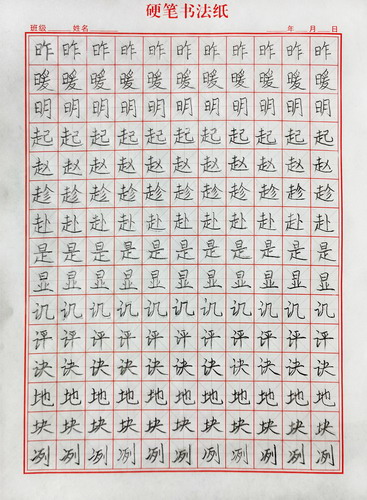 硬笔书法纸
班级 姓名 年 月 日
昨昨昨昨昨昨昨昨昨昨昨
暖暖暖暖暖暖暖暖暖暖暖
明明明明明明明明明明明
起起起起起起起起起起起
赵赵赵赵赵赵赵赵赵赵赵
趁趁趁趁趁趁趁趁趁趁趁
赴赴赴赴赴赴赴赴赴赴赴
是是是是是是是是是是是
显显显显显显显显显显显
讥讥讥讥讥讥讥讥讥讥讥
评评评评评评评评评评评
诀诀诀诀诀诀诀诀诀诀诀
地地地地地地地地地地地
块块块块块块块块块块块
冽冽冽冽冽冽冽冽冽冽冽